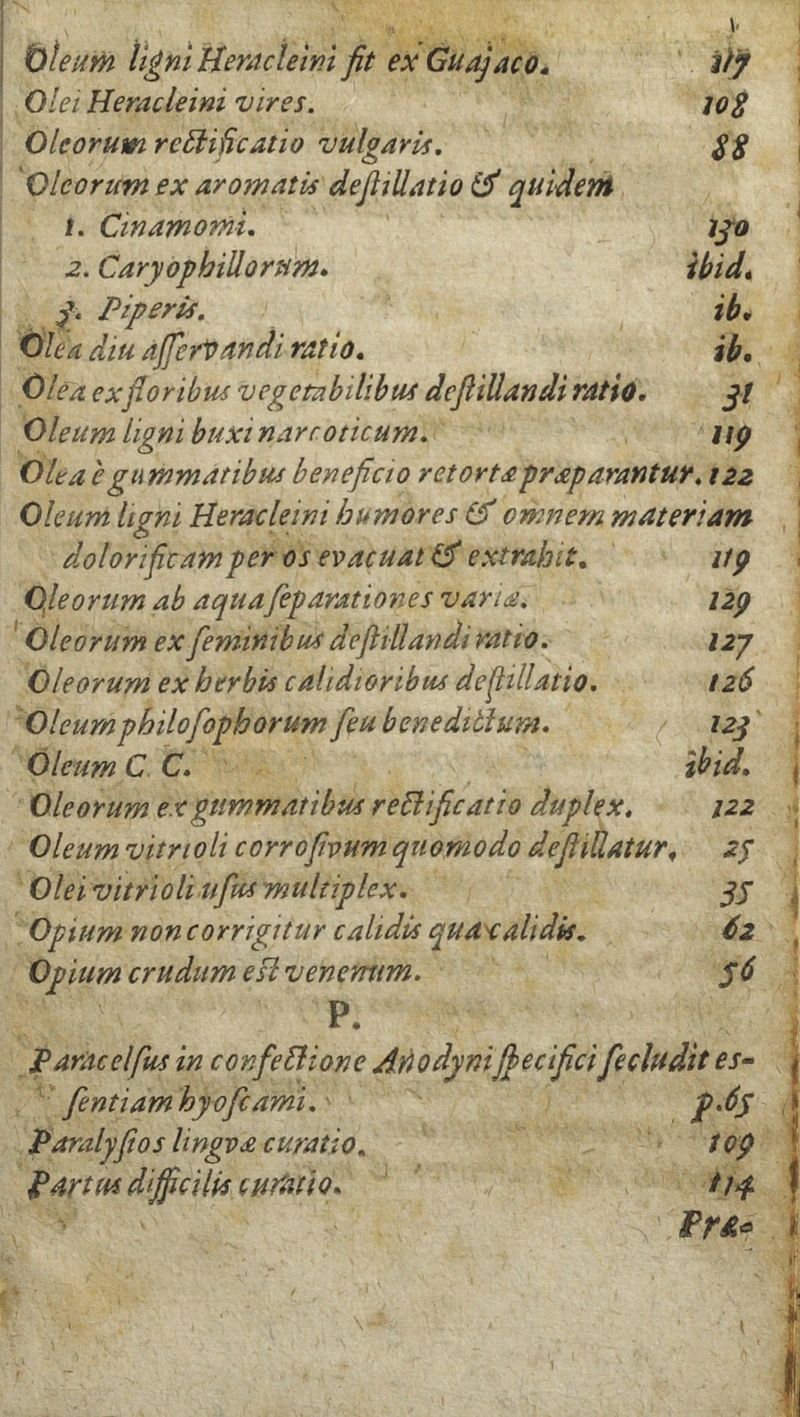 Oleum ligni Heracleini fit ex Guajaco. 117
Olei Heracleini vires. 108
Oleorum rectificatio vulgaris. 88
Oleorum ex aromatis deſtillatio & quidem
1. Cinamomi. 130
2. Caryophillorum. ibid.
3. Piperis. ib.
Olea diu aſſervandi ratio. ib.
Olea ex floribus vegetabilibus deſtillandi ratio. 31
Oleum ligni buxi narcoticum. 119
Olea è gummatibus beneficio retortæ præparantur. 122
Oleum ligni Heracleini humores & omnem materiam
dolorificam per os evacuat & extrahit. 119
Oleorum ab aqua ſeparationes variæ. 129
Oleorum ex ſeminibus deſtillandi ratio. 127
Oleorum ex herbis calidioribus deſtillatio. 126
Oleum philoſophorum ſeu benedictum. 123
Oleum C. C. ibid.
Oleorum ex gummatibus rectificatio duplex. 122
Oleum vitrioli corroſivum quomodo deſtillatur. 25
Olei vitrioli uſus multiplex. 35
Opium non corrigitur calidis qua calidis. 62
Opium crudum eſt venenum. 56
P.
Paracelſus in confectione Anodyni ſpecifici ſecludit es-
ſentiam hyoſcami. p.65
Paralyſios lingvæ curatio. 109
Partus difficilis curatio. 114
Præ-